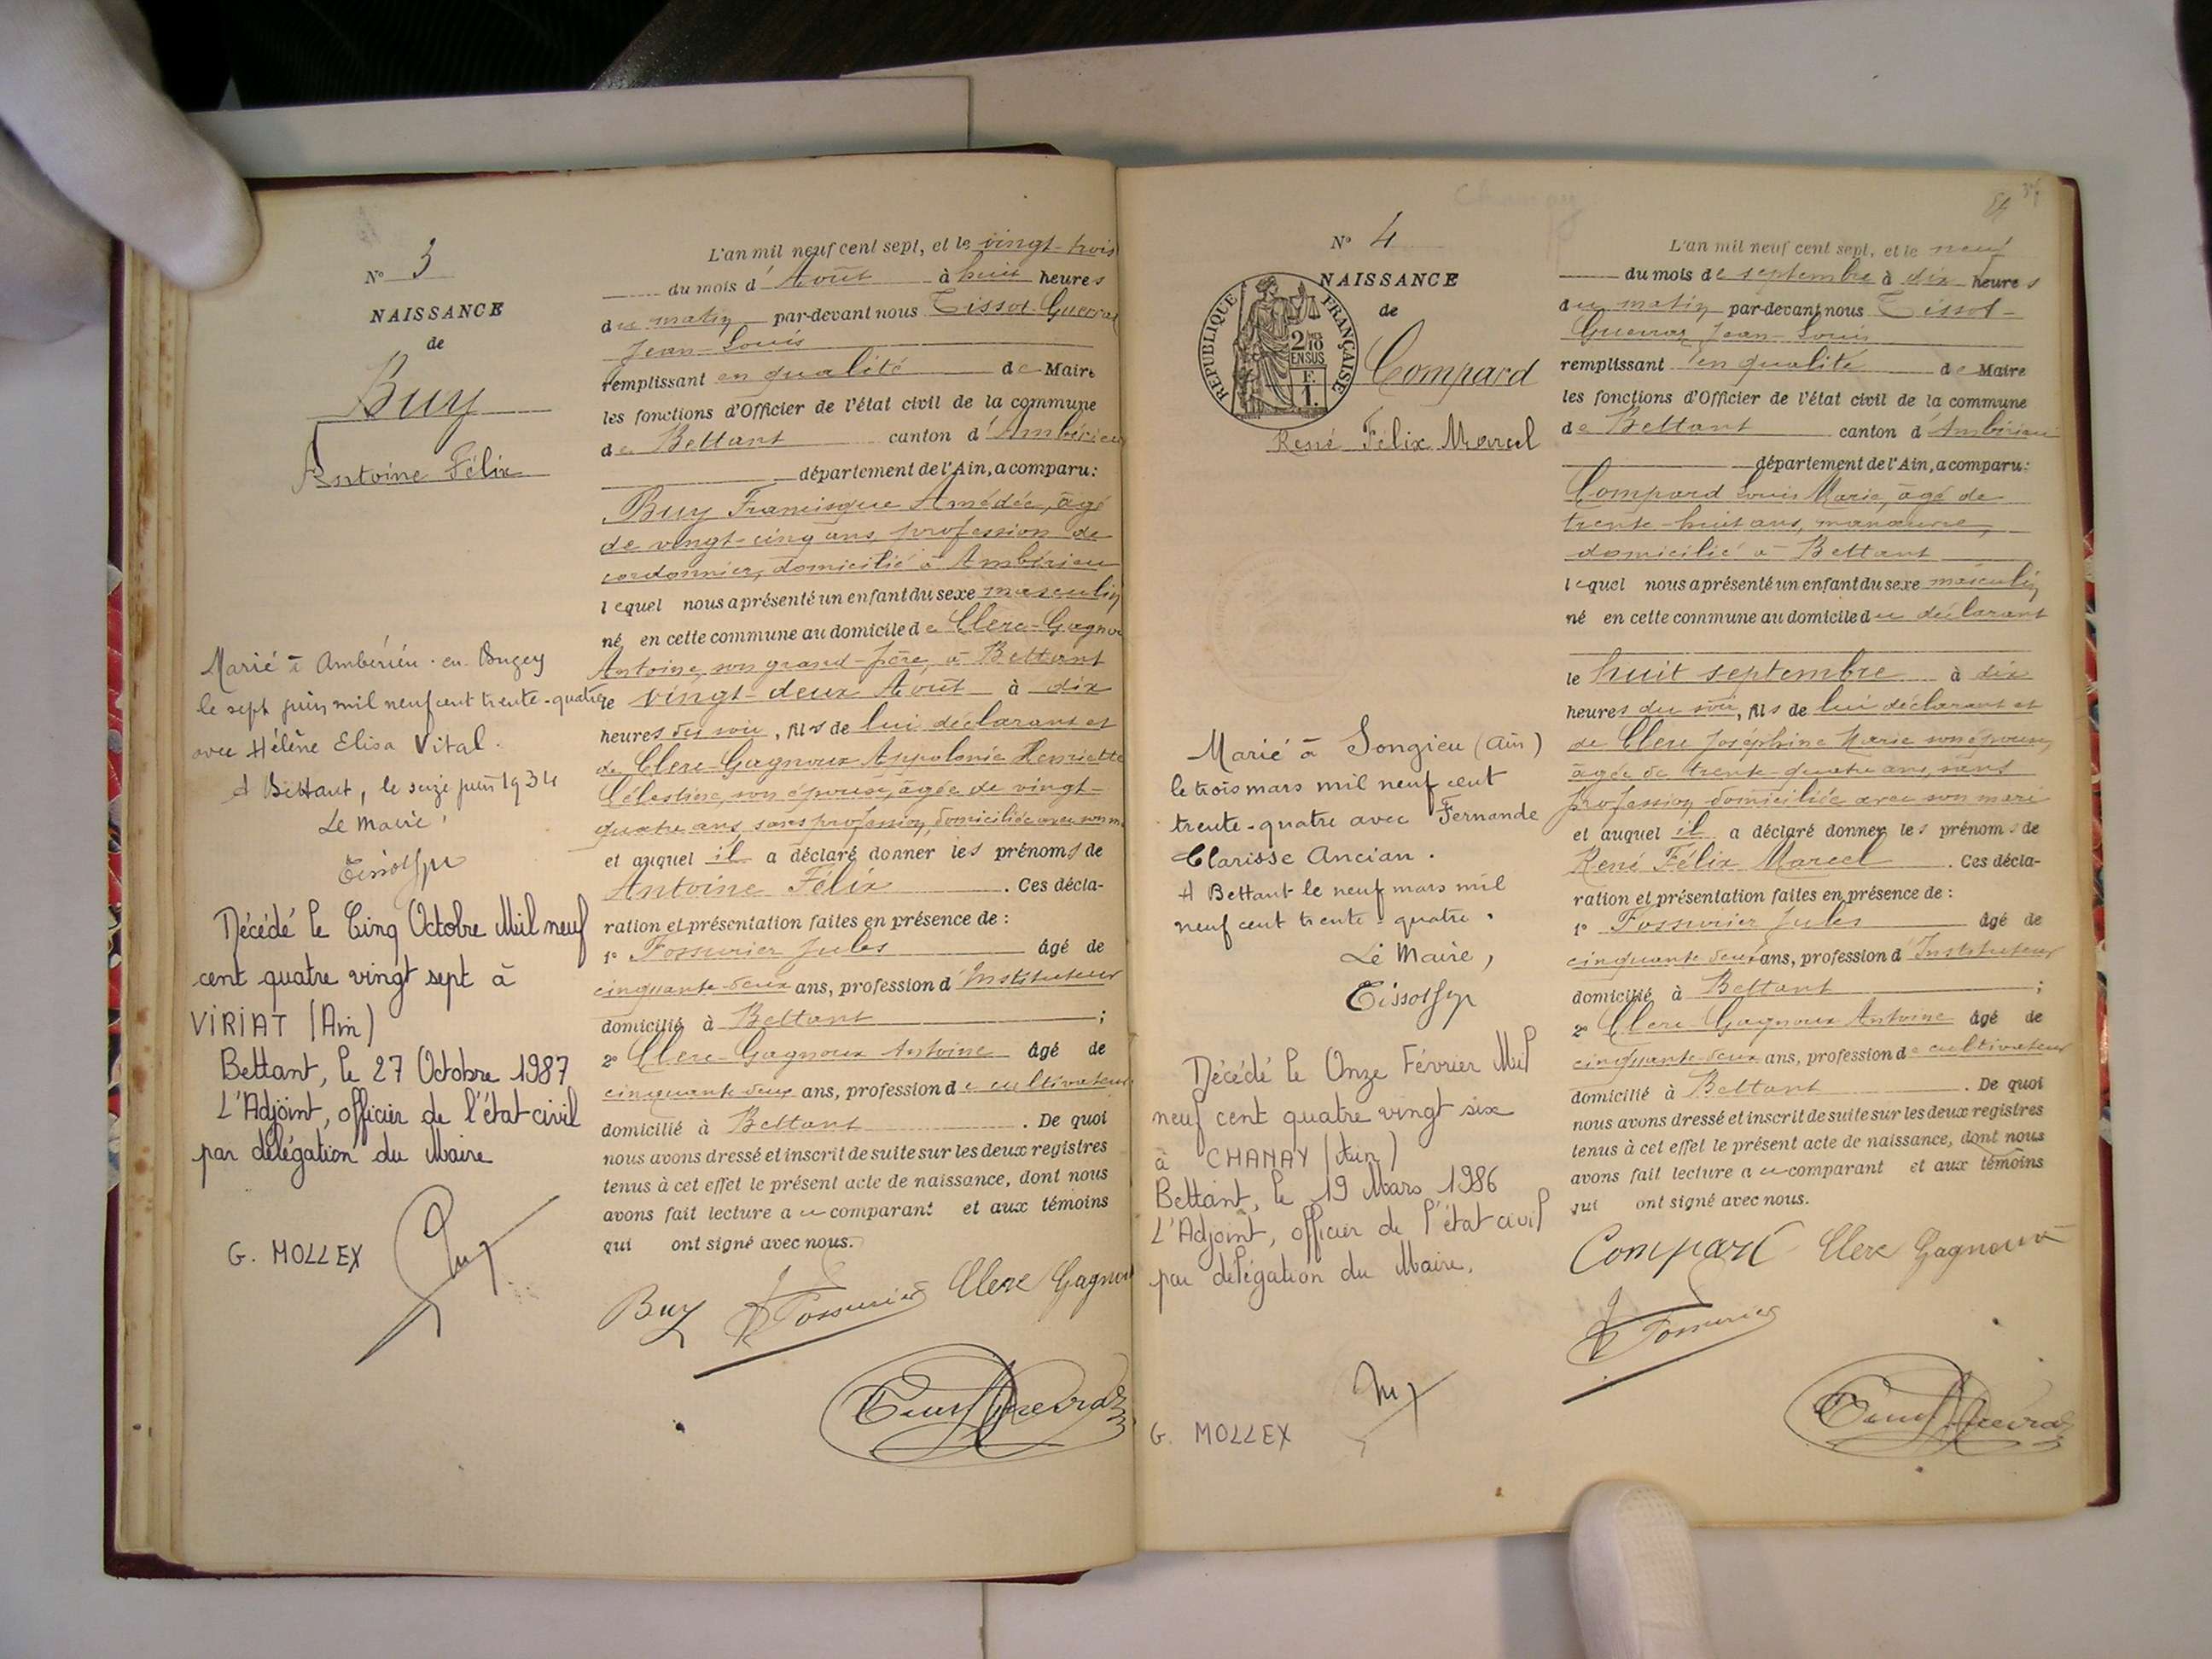 N° 3
NAISSANCE
de
Buy
Antoine Félix
Marié à Ambérieu-en-Bugey
le sept juin mil neuf cent trente-quatre
avec Hélène Elisa Vital.
A Bettant, le seize juin 1934
Le Maire,
Décédé le Cinq Octobre Mil neuf
cent quatre vingt sept à
VIRIAT (Ain)
Bettant, le 27 Octobre 1987
L'Adjoint, officier de l'état civil
par délégation du Maire
G. MOLLEX
L'an mil neuf cent sept, et le vingt-trois
du mois d'Août à huit heures
du matin par-devant nous Tissot-Guerraz
Jean-Louis
remplissant en qualité de Maire
les fonctions d'Officier de l'état civil de la commune
de Bettant canton d'Ambérieu
département de l'Ain, a comparu:
Buy Francisque Amédée, âgé
de vingt-cinq ans, profession de
cordonnier, domicilié à Ambérieu
lequel nous a présenté un enfant du sexe masculin
né en cette commune au domicile de Clerc-Gagnoux
Antoine, son grand-père, à Bettant
le vingt-deux Août à dix
heures du soir, fils de lui déclarant et
de Clerc-Gagnoux Appolonie Henriette
Célestine, son épouse, âgée de vingt-
quatre ans, sans profession, domiciliée avec son m
et auquel il a déclaré donner les prénoms de
Antoine Félix. Ces décla-
ration et présentation faites en présence de :
1° Fossurier Jules âgé de
cinquante-deux ans, profession d'Instituteur
domicilié à Bettant ;
2° Clerc-Gagnoux Antoine âgé de
cinquante-deux ans, profession de cultivateur
domicilié à Bettant. De quoi
nous avons dressé et inscrit de suite sur les deux registres
tenus à cet effet le présent acte de naissance, dont nous
avons fait lecture au comparant et aux témoins
qui ont signé avec nous.
Buy Fossurier Clerc Gagnoux
N° 4
NAISSANCE
de
RÉPUBLIQUE FRANÇAISE
2/10 EN SUS
F. 1.
Compard
René Félix Marcel
Marié à Songieu (Ain)
le trois mars mil neuf cent
trente-quatre avec Fernande
Clarisse Ancian.
A Bettant le neuf mars mil
neuf cent trente-quatre.
Le Maire,
Décédé le Onze Février Mil
neuf cent quatre vingt six
à CHANAY (Ain)
Bettant, le 19 Mars 1986
L'Adjoint, officier de l'état civil
par délégation du Maire,
G. MOLLEX
L'an mil neuf cent sept, et le neuf
du mois de septembre à dix heures
du matin par-devant nous Tissot-
Guerraz Jean-Louis
remplissant en qualité de Maire
les fonctions d'Officier de l'état civil de la commune
de Bettant canton d'Ambérieu
département de l'Ain, a comparu:
Compard Louis Marie, âgé de
trente-huit ans, manœuvre,
domicilié à Bettant
lequel nous a présenté un enfant du sexe masculin
né en cette commune au domicile du déclarant
le huit septembre à dix
heures du soir, fils de lui déclarant et
de Clerc Joséphine Marie son épouse,
âgée de trente-quatre ans, sans
profession, domiciliée avec son mari
et auquel il a déclaré donner les prénoms de
René Félix Marcel. Ces décla-
ration et présentation faites en présence de :
1° Fossurier Jules âgé de
cinquante-deux ans, profession d'Instituteur
domicilié à Bettant ;
2° Clerc-Gagnoux Antoine âgé de
cinquante-deux ans, profession de cultivateur
domicilié à Bettant. De quoi
nous avons dressé et inscrit de suite sur les deux registres
tenus à cet effet le présent acte de naissance, dont nous
avons fait lecture au comparant et aux témoins
qui ont signé avec nous.
Compard Clerc Gagnoux
Fossurier